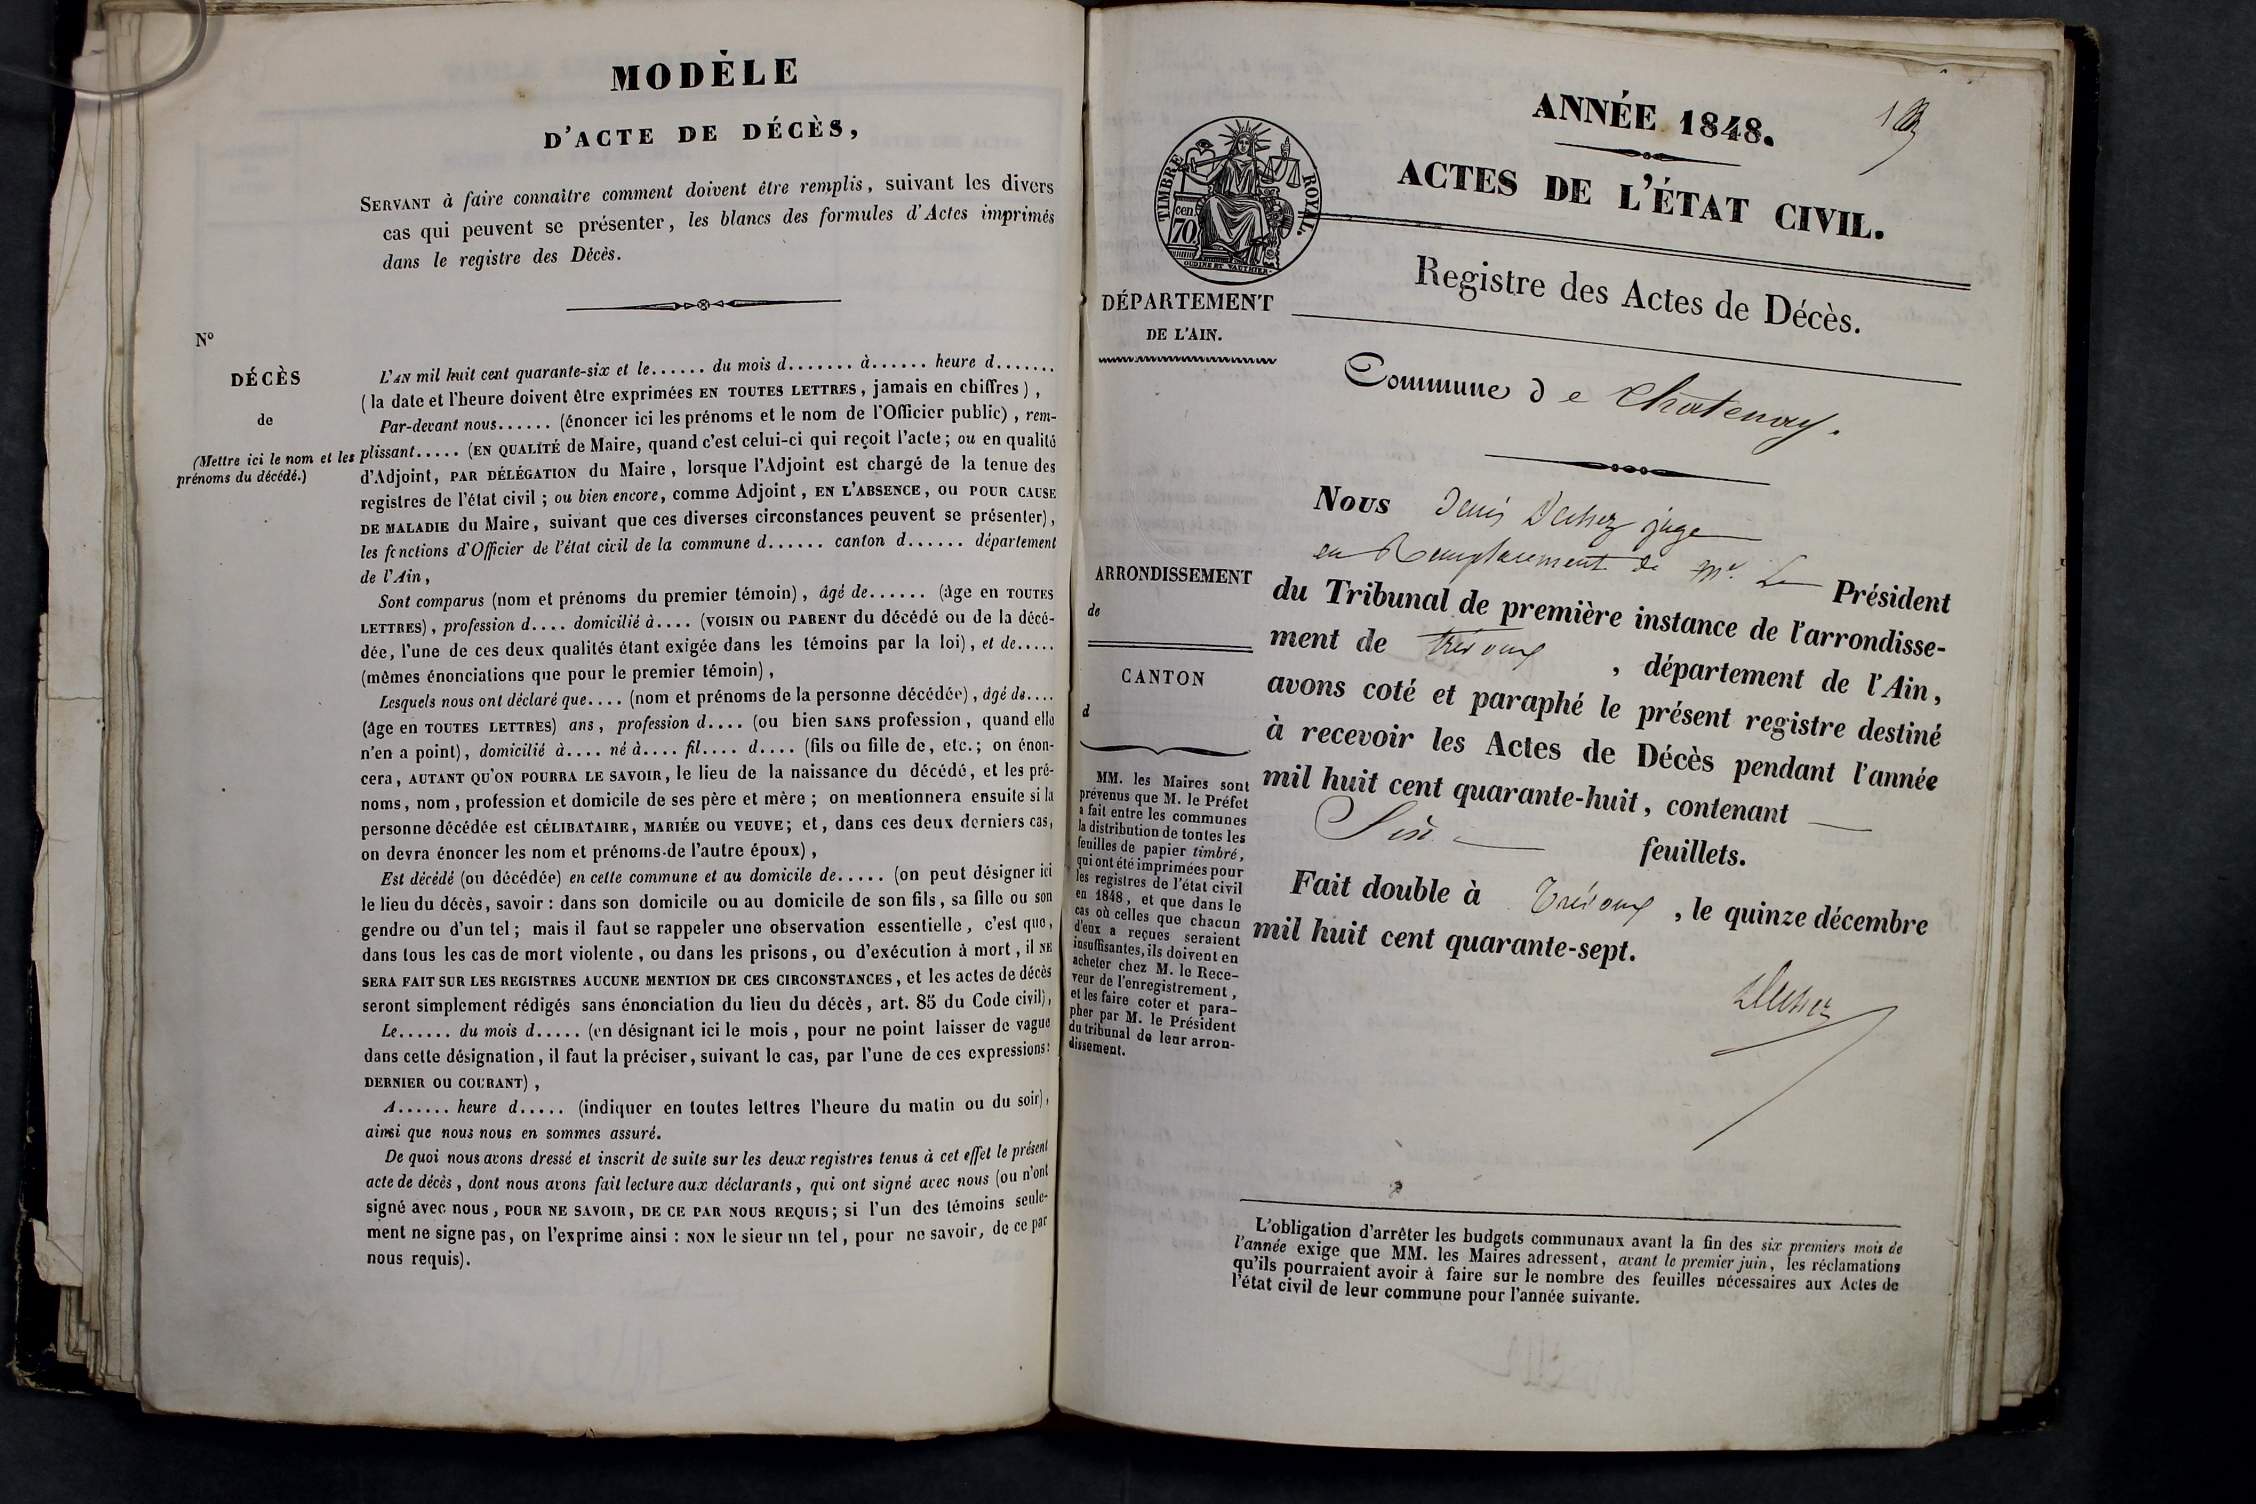 MODÈLE
D'ACTE DE DÉCÈS,
SERVANT à faire connaître comment doivent être remplis, suivant les divers
cas qui peuvent se présenter, les blancs des formules d'Actes imprimés
dans le registre des Décès.
N°
DÉCÈS
de
(Mettre ici le nom et les
prénoms du décédé.)
L'AN mil huit cent quarante-six et le...... du mois d....... à...... heure d.......
(la date et l'heure doivent être exprimées EN TOUTES LETTRES, jamais en chiffres),
Par-devant nous...... (énoncer ici les prénoms et le nom de l'Officier public), rem-
plissant..... (EN QUALITÉ de Maire, quand c'est celui-ci qui reçoit l'acte; ou en qualité
d'Adjoint, PAR DÉLÉGATION du Maire, lorsque l'Adjoint est chargé de la tenue des
registres de l'état civil; ou bien encore, comme Adjoint, EN L'ABSENCE, OU POUR CAUSE
DE MALADIE du Maire, suivant que ces diverses circonstances peuvent se présenter),
les fonctions d'Officier de l'état civil de la commune d...... canton d...... département
de l'Ain,
Sont comparus (nom et prénoms du premier témoin), âgé de...... (âge en TOUTES
LETTRES), profession d.... domicilié à.... (VOISIN OU PARENT du décédé ou de la décé-
dée, l'une de ces deux qualités étant exigée dans les témoins par la loi), et de.....
(mêmes énonciations que pour le premier témoin),
Lesquels nous ont déclaré que.... (nom et prénoms de la personne décédée), âgé de....
(âge en TOUTES LETTRES) ans, profession d.... (ou bien SANS profession, quand elle
n'en a point), domicilié à.... né à.... fil.... d.... (fils ou fille de, etc.; on énon-
cera, AUTANT QU'ON POURRA LE SAVOIR, le lieu de la naissance du décédé, et les pré-
noms, nom, profession et domicile de ses père et mère; on mentionnera ensuite si la
personne décédée est CÉLIBATAIRE, MARIÉE OU VEUVE; et, dans ces deux derniers cas,
on devra énoncer les nom et prénoms de l'autre époux),
Est décédé (ou décédée) en cette commune et au domicile de..... (on peut désigner ici
le lieu du décès, savoir: dans son domicile ou au domicile de son fils, sa fille ou son
gendre ou d'un tel; mais il faut se rappeler une observation essentielle, c'est que,
dans tous les cas de mort violente, ou dans les prisons, ou d'exécution à mort, il NE
SERA FAIT SUR LES REGISTRES AUCUNE MENTION DE CES CIRCONSTANCES, et les actes de décès
seront simplement rédigés sans énonciation du lieu du décès, art. 85 du Code civil),
Le...... du mois d..... (en désignant ici le mois, pour ne point laisser de vague
dans cette désignation, il faut la préciser, suivant le cas, par l'une de ces expressions:
DERNIER OU COURANT),
A...... heure d..... (indiquer en toutes lettres l'heure du matin ou du soir),
ainsi que nous nous en sommes assuré.
De quoi nous avons dressé et inscrit de suite sur les deux registres tenus à cet effet le présent
acte de décès, dont nous avons fait lecture aux déclarants, qui ont signé avec nous (ou n'ont
signé avec nous, POUR NE SAVOIR, DE CE PAR NOUS REQUIS; si l'un des témoins seule-
ment ne signe pas, on l'exprime ainsi: NON le sieur un tel, pour ne savoir, de ce par
nous requis).
ANNÉE 1848.
ACTES DE L'ÉTAT CIVIL.
TIMBRE ROYAL.
cen.
70
OUDINÉ ET VAUTHIER
Registre des Actes de Décès.
DÉPARTEMENT
DE L'AIN.
Commune de Chatenay.
Nous Denis Duhez juge
en Remplacement de Mr. Le Président
du Tribunal de première instance de l'arrondisse-
ment de Trévoux, département de l'Ain,
avons coté et paraphé le présent registre destiné
à recevoir les Actes de Décès pendant l'année
mil huit cent quarante-huit, contenant
Six feuillets.
Fait double à Trévoux, le quinze décembre
mil huit cent quarante-sept.
ARRONDISSEMENT
de
CANTON
d
MM. les Maires sont
prévenus que M. le Préfet
a fait entre les communes
la distribution de toutes les
feuilles de papier timbré,
qui ont été imprimées pour
les registres de l'état civil
en 1848, et que dans le
cas où celles que chacun
d'eux a reçues seraient
insuffisantes, ils doivent en
acheter chez M. le Rece-
veur de l'enregistrement,
et les faire coter et para-
pher par M. le Président
du tribunal de leur arron-
dissement.
L'obligation d'arrêter les budgets communaux avant la fin des six premiers mois de
l'année exige que MM. les Maires adressent, avant le premier juin, les réclamations
qu'ils pourraient avoir à faire sur le nombre des feuilles nécessaires aux Actes de
l'état civil de leur commune pour l'année suivante.